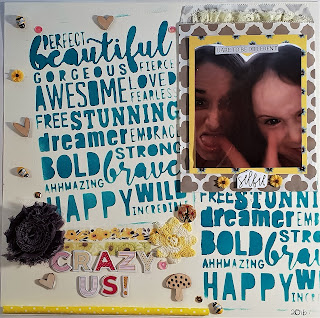 PERFECT
beautiful
GORGEOUS FIERCE
AWESOME LOVED
FEARLESS
FREE STUNNING
dreamer EMBRACE
BOLD STRONG
AHHMAZING brave
HAPPY WILD
INCREDIB
selfie
FREE STUNNING
dreamer EMB
BOLD STRO
AHHMAZING brave
HAPPY WIL
INCREDI
CRAZY
US!
2016